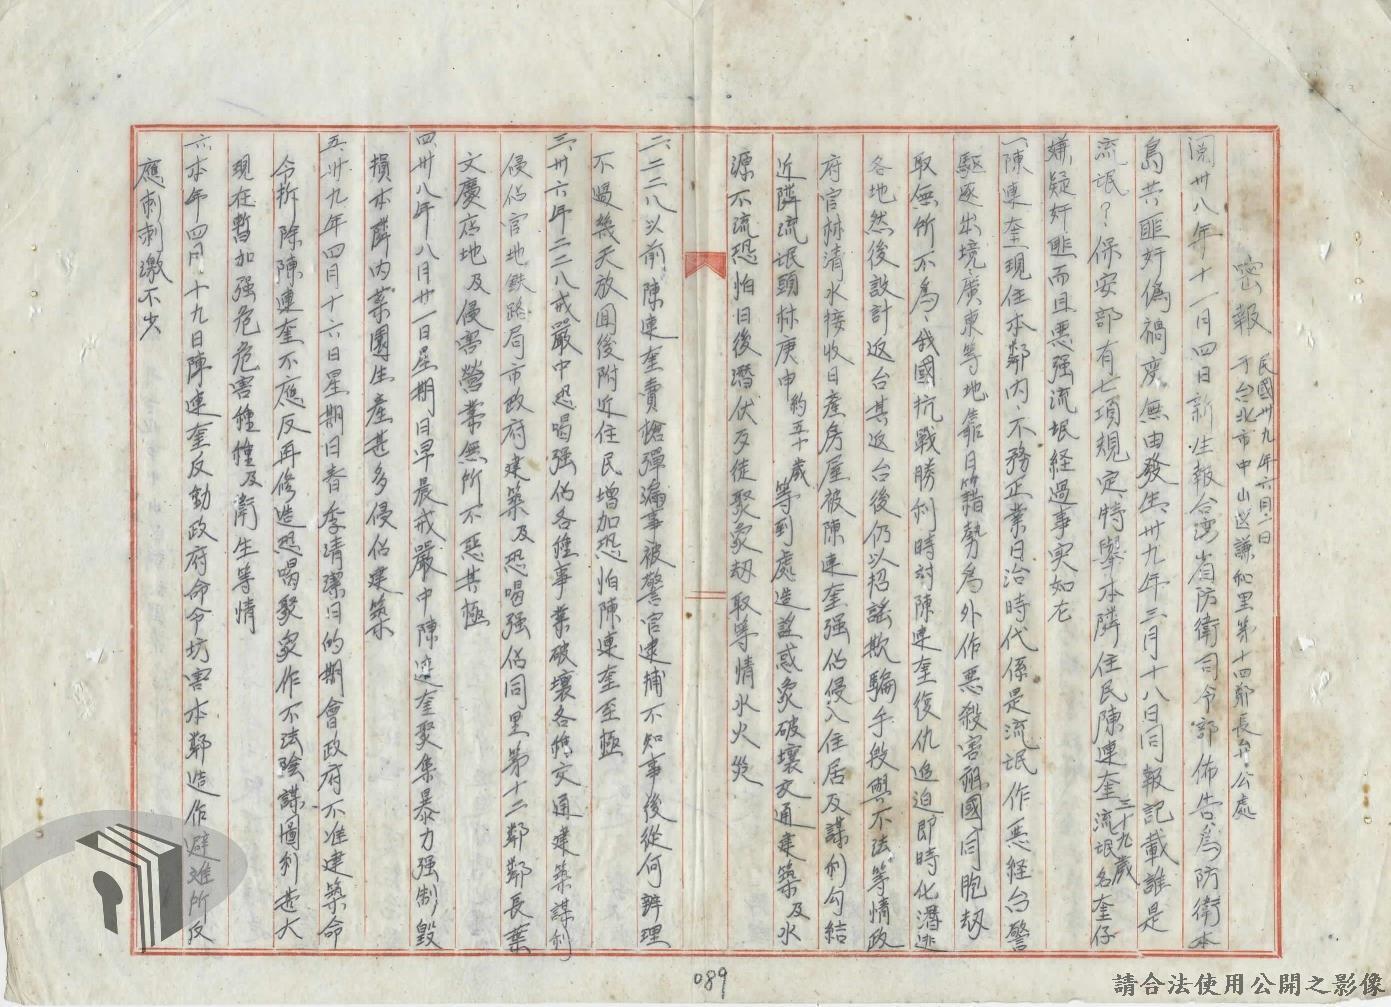 密報 民國卅九年六月二日
于台北市中山區謙和里第十四鄰長弁公處
閱卅八年十一月四日新生報台湾省防衛司令部佈告為防衛本
島共匪奸偽禍度無由發生卅九年三月十八日同報記載誰是
流氓？保安部有七項規定特舉本隣住民陳連奎三十九歲流氓名奎仔
嫌疑奸匪而且悪强流氓経過事实如左
一、陳連奎現住本鄰内、不務正業日治時代係是流氓作悪経台警
駆逐出境廣東等地靠日籍勢為外作悪殺害祖國同胞刼
取無所不為、我國抗戰勝利時討陳連奎復仇追迫即時化潛逃
各地然後設計返台其返台後仍以招謠欺騙手段與不法等情政
府官林清水接收日產房屋被陳連奎强佔侵入住居及謀利勾結
近隣流氓頭林庚申約五十歲等到處造謠惑衆破壞交通建築及水
源不流恐怕日後潛伏歹徒聚衆刼取等情水火災
二、二二八以前陳連奎賣槍彈漏事被警官逮捕不知事後從何辨理
不過幾天放囬後附近住民增加恐怕陳連奎至極
三、卅六年二二八戒嚴中恐喝强佔各種事業破壞各種交通建築謀利
侵佔官地鉄路局市政府建築及恐喝强佔同里第十二鄰鄰長葉
文慶店地及侵害營業無所不惡其極
四、卅八年八月廿一日星期日早晨戒嚴中陳連奎聚集暴力强制毀
損本鄰内菜園生產甚多侵佔建築
五、卅九年四月十六日星期日春季清潔日的期會政府不准建築命
令拆除陳連奎不應反再修造恐喝聚衆作不法陰謀圖利甚大
現在暫加强危危害種種及衛生等情
六、本年四月十九日陳連奎反動政府命令坊害本鄰造作避难所反
應刺刺激不少
089
請合法使用公開之影像